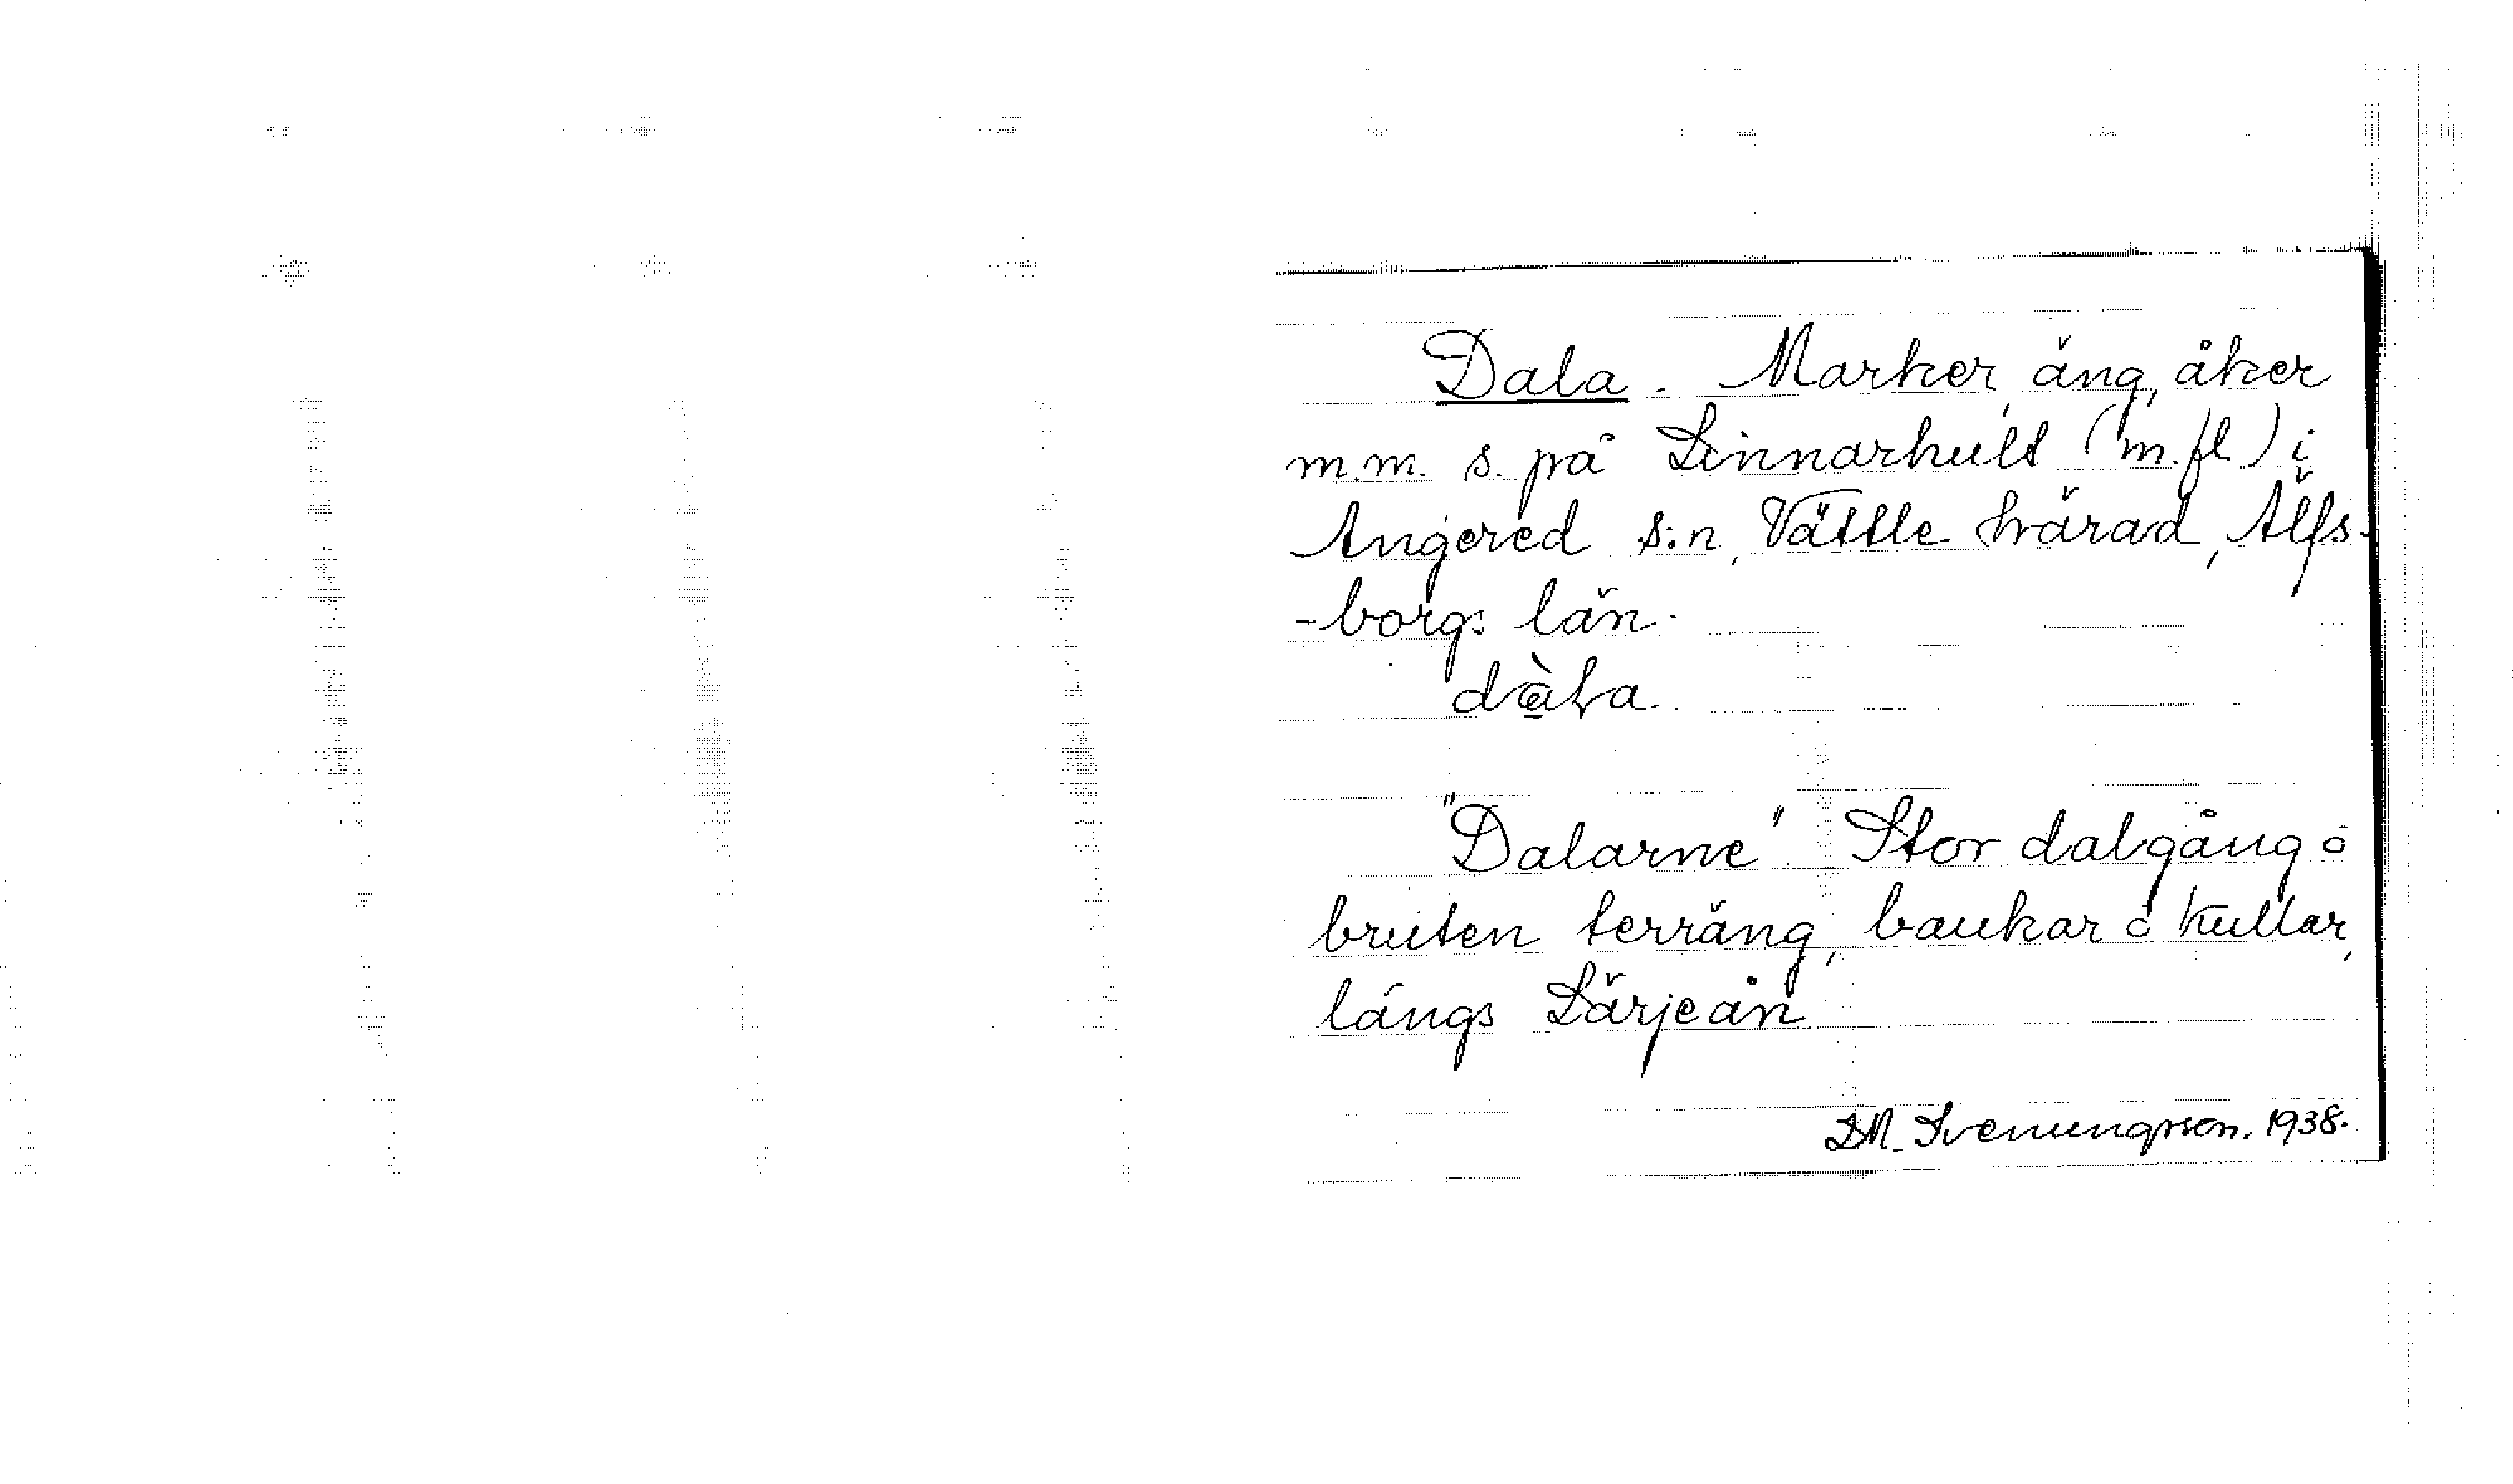 Dala. Marker, äng, åker
m.m. s. på Linnarhult (m.fl) i
Angered s:n, Vättle härad, Älfs-
-borgs län.
dàla.
"Dalarne". Stor dalgång o
bruten terräng, bankar o kullar,
längs Lärjeån
D.M. Svenungsson. 1938.